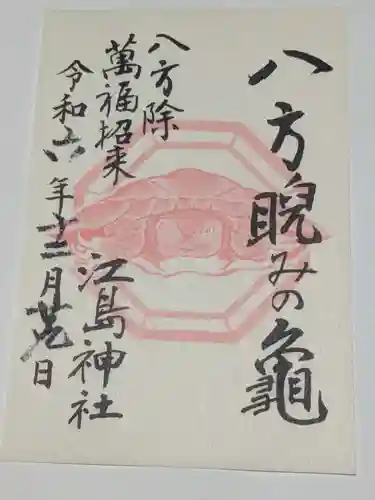 八方睨みの亀
八方除
萬福招来
江島神社
令和六年十二月廿九日